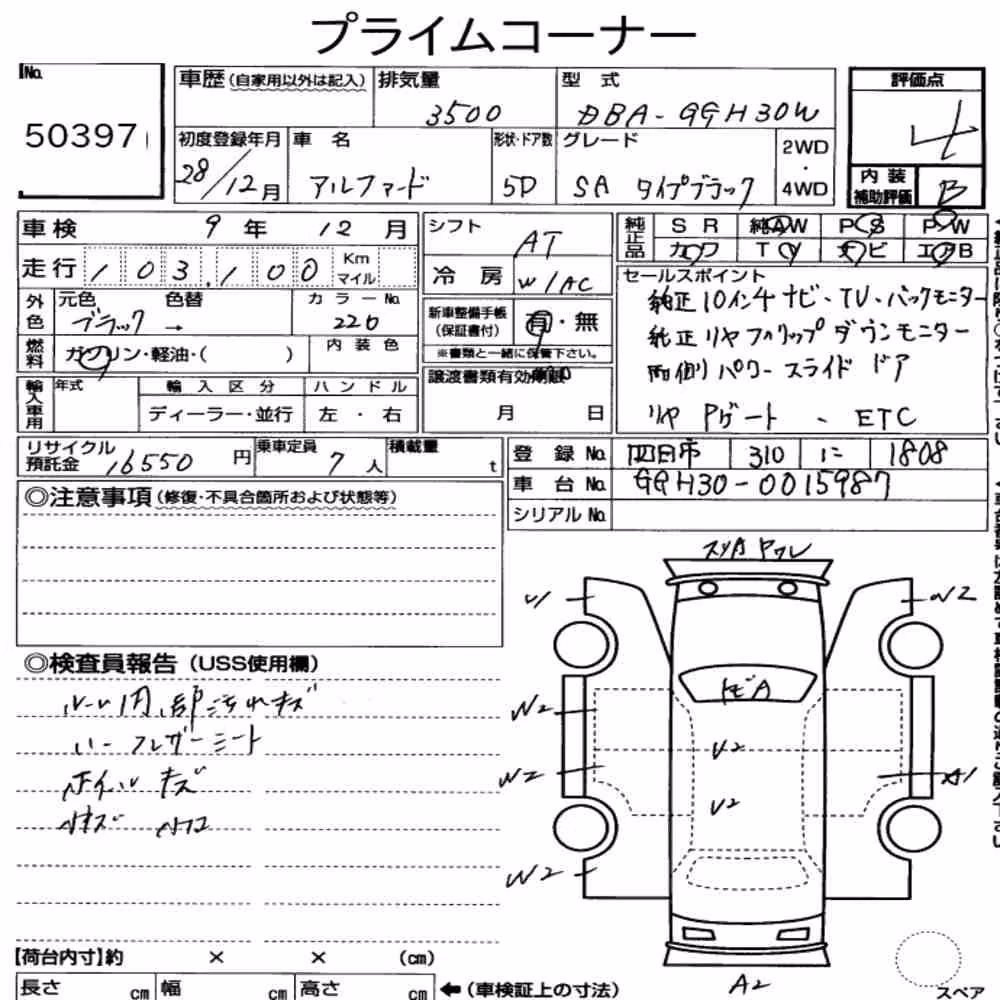 プライムコーナー
No. 50397
車歴(自家用以外は記入) 排気量 3500 型式 DBA-GGH30W 評価点 4
初度登録年月 28/12月 車名 アルファード 形状・ドア数 5D グレード SA タイプブラック 2WD・4WD 内装補助評価 B
車検 9年 12月
走行 103,100 Km マイル
外色 元色 ブラック 色替 → カラーNo. 220
燃料 ガソリン・軽油・( ) 内装色
輸入車用 年式 輸入区分 ディーラー・並行 ハンドル 左・右
シフト AT
冷房 W/AC
新車整備手帳(保証書付) 有・無
※書類と一緒に保管下さい。
譲渡書類有効期限
月 日
純正品 SR 純AW PS PW
カワ TV ナビ エアB
セールスポイント
純正10インチナビ・TV・バックモニター
純正リヤフリップダウンモニター
両側パワースライドドア
リヤPゲート、ETC
リサイクル預託金 16550円 乗車定員 7人 積載量 t
登録No. 四日市 310 に 1808
車台No. GGH30-0015987
シリアルNo.
◎注意事項(修復・不具合箇所および状態等)
◎検査員報告(USS使用欄)
ルーム内部汚れキズ
ハーフレザーシート
ホイルキズ
小キズ 小凹
W2
トビA
W2
U2
W2
A1
U2
W2
A2
【荷台内寸】約 × × (cm)
長さ cm 幅 cm 高さ cm ←(車検証上の寸法)
スペア